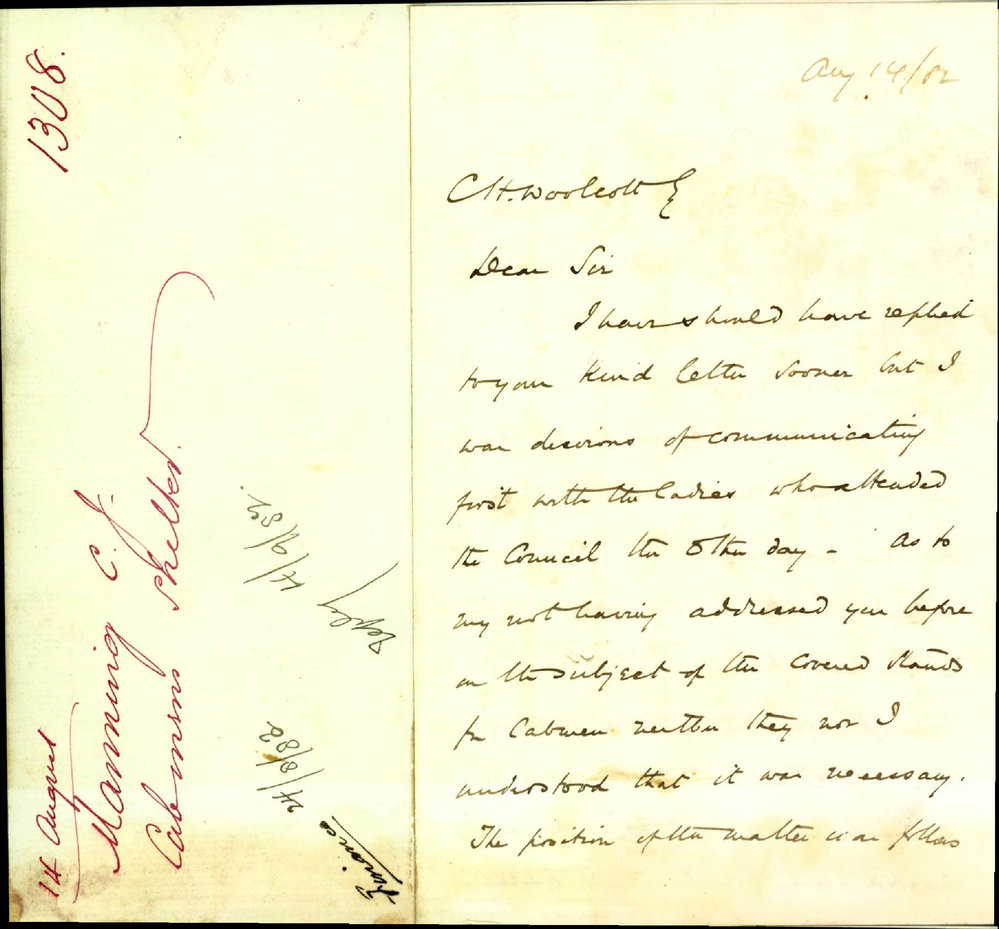 1308.
14 August
Manning C. J.
Cabmens Shelter.
Reply 4/9/82.
Finance 24/8/82
Aug 14/82
C H. Woolcott E
Dear Sir
I have should have replied
to your kind letter sooner but I
was desirous of communicating
first with the Ladies who attended
the Council the other day - As to
my not having addressed you before
on the subject of the Covered Stands
for Cabmen neither they nor I
understood that it was necessary.
The position of the matter is as follows